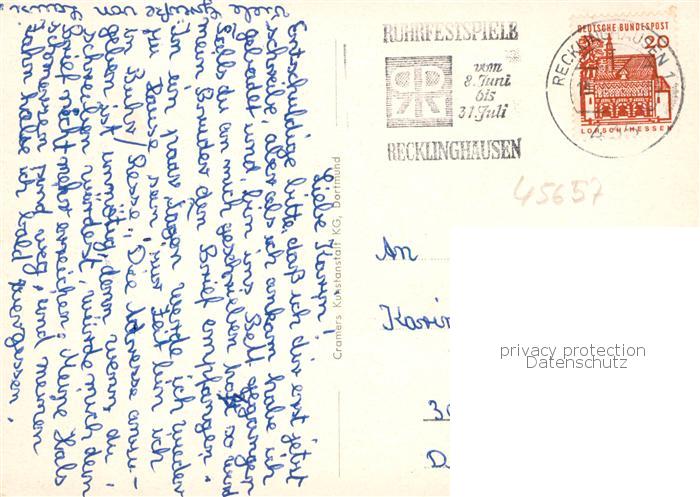 Liebe Karin!
Entschuldige bitte, daß ich dir erst jetzt
schreibe, aber als ich ankam habe ich
gebadet und bin ins Bett gegangen
Falls du an mich geschrieben hast so wird
mein Bruder den Brief empfangen.
In ein paar Tagen werde ich wieder
zu Hause sein, zur Zeit bin ich
in Buhr/Pesse. Die Adresse anzu-
geben ist unnötig, denn wenn du
schreiben würdest, würde mich dein
Brief nicht mehr erreichen. Meine Hals
schmerzen sind weg, und meinen
Zahn habe ich bald vergessen.
Viele Grüße von
Cramers Kunstanstalt KG, Dortmund
RUHRFESTSPIELE
vom
8. Juni
bis
31. Juli
RECKLINGHAUSEN
RECKLINGHAUSEN 1
DEUTSCHE BUNDESPOST
20
LORSCH/HESSEN
45657
An
Karin
privacy protection
Datenschutz